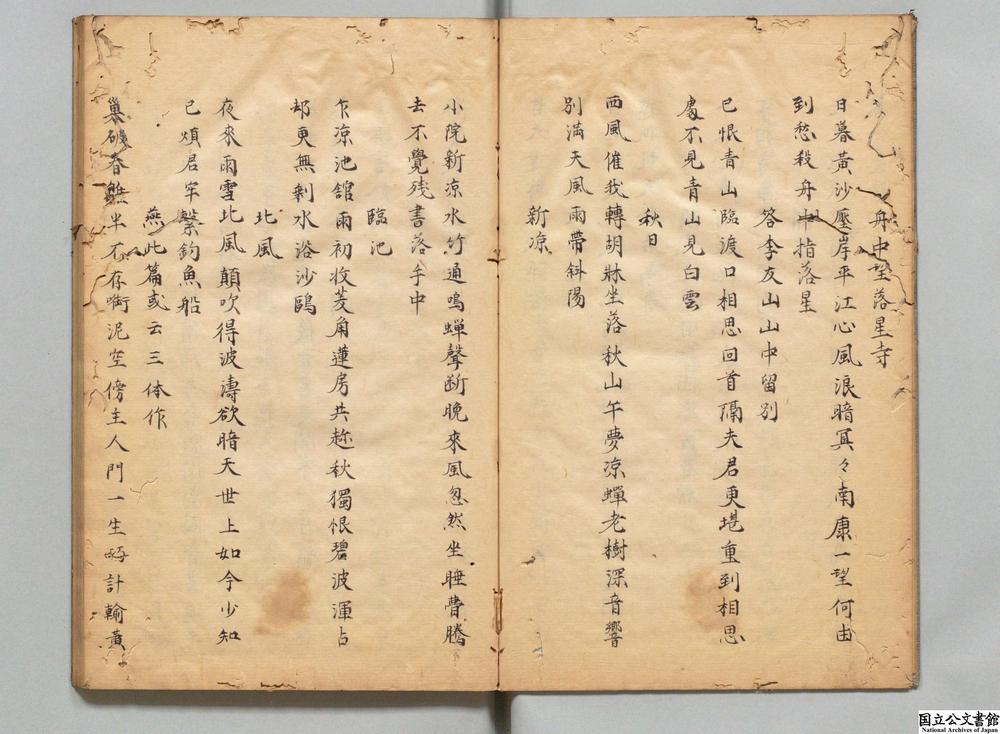 舟中望落星寺
日暮黄沙壓岸平江心風浪暗冥々南康一望何由
到愁殺舟中指落星
答李友山山中留別
已恨青山臨渡口相思回首隔夫君更堪重到相思
處不見青山見白雲
秋日
西風催我轉胡牀坐落秋山午夢凉蟬老樹深音響
別満天風雨帶斜陽
新凉
小院新凉水竹通鳴蟬聲断晩來風忽然坐睡瞢騰
去不覺残書落手中
臨池
乍凉池舘雨初收菱角蓮房共趂秋獨恨碧波渾占
却更無剰水浴沙鷗
北風
夜來雨雪北風顛吹得波濤欲暗天世上如今少知
已煩君牢繫釣魚船
燕此篇或云三体作
巢破春 半不存啣泥空傍主人門一生 計輸黄
国立公文書館
National Archives of Japan